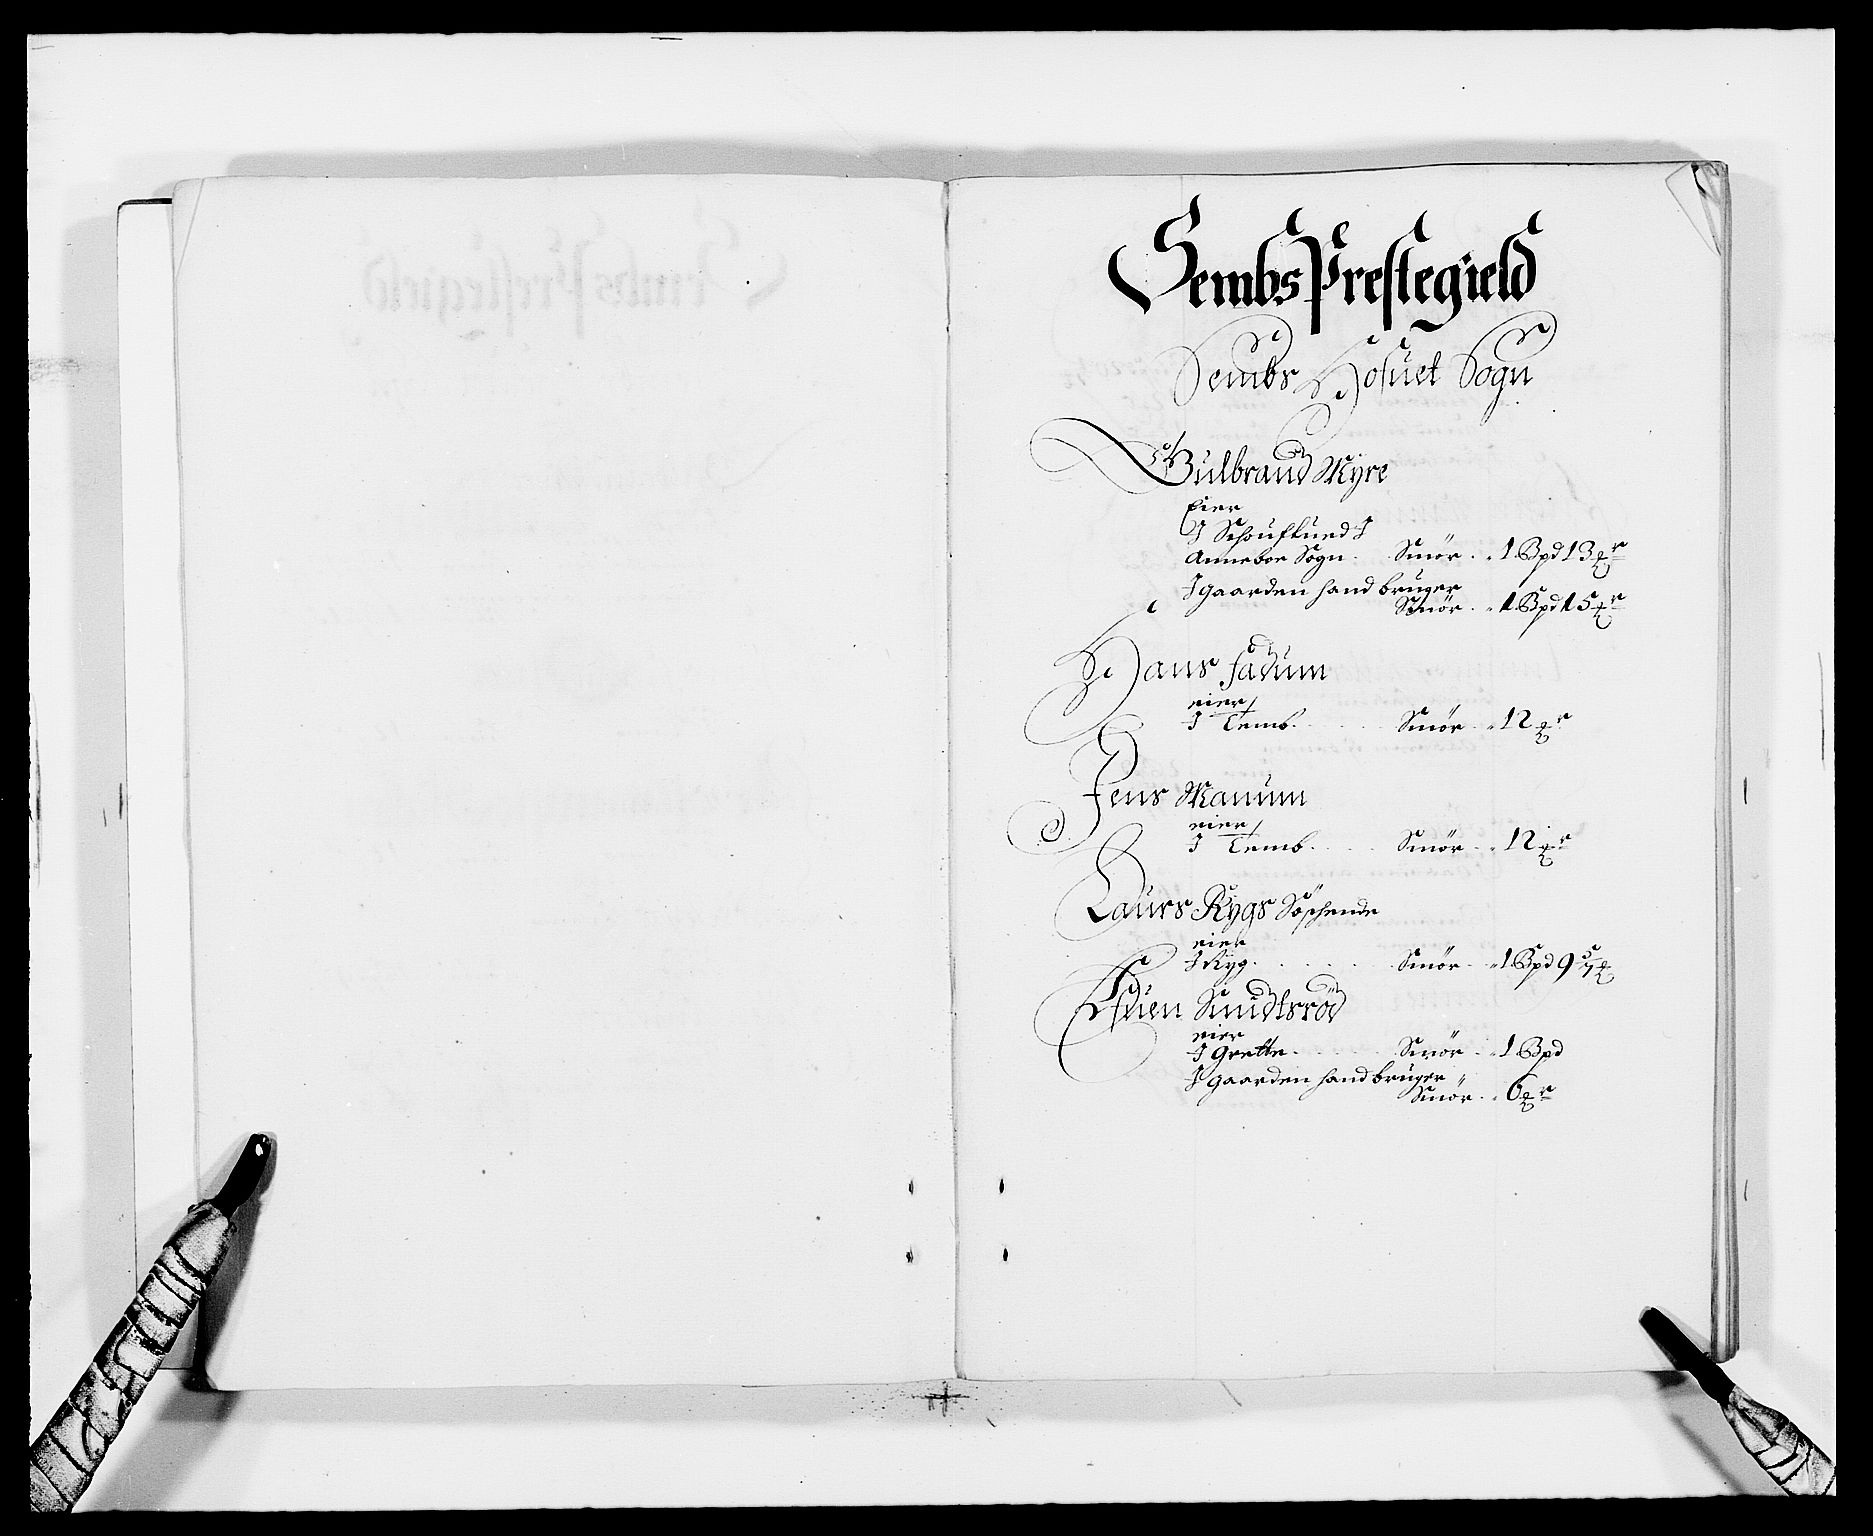 Sembs Prestegield
Sembs Hofuet Sogn
Gulbrand Myre
Eier
J Schouflund J
Anneboe Sogn. Smör. 1 Bpd 13 ℔r
J gaarden hand bruger
Smör. 1 Bpd 15 ℔r
Hans Fadum
eier
J Temb. Smör. 12 ℔r
Jens Manum
eier
J Temb. Smör. 12 ℔r
Laurs Rygs Söschende
eier
J Ryg. Smör. 1 Bpd 9 ℔
Efuen Knudtsröd
eier
J Grette. Smör. 1 Bpd
J gaarden hand bruger
Smör. 6 ℔r